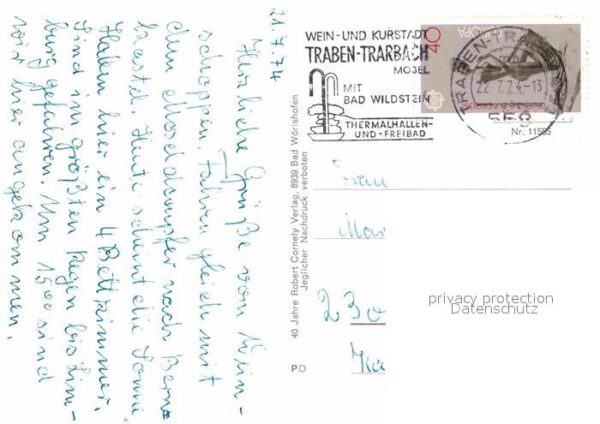 21.7.74
Herzliche Grüße vom Wein-
schoppen. Fahren gleich mit
dem Moseldampfer nach Bern-
kastel. Heute scheint die Sonne
Haben hier ein 4 Bettzimmer.
Sind im größten Regen bis Lim-
burg gefahren. Um 15⁰⁰ sind
wir hier angekommen.
WEIN- UND KURSTADT
TRABEN-TRARBACH
MOSEL
MIT
BAD WILDSTEIN
THERMALHALLEN-
UND -FREIBAD
40
EUROPA
TRABEN-TRARBACH
22.7.74-13
Nr. 11555
40 Jahre Robert Cornely Verlag. 8939 Bad Wörishofen
Jeglicher Nachdruck verboten
Frau
230
PO
privacy protection
Datenschutz